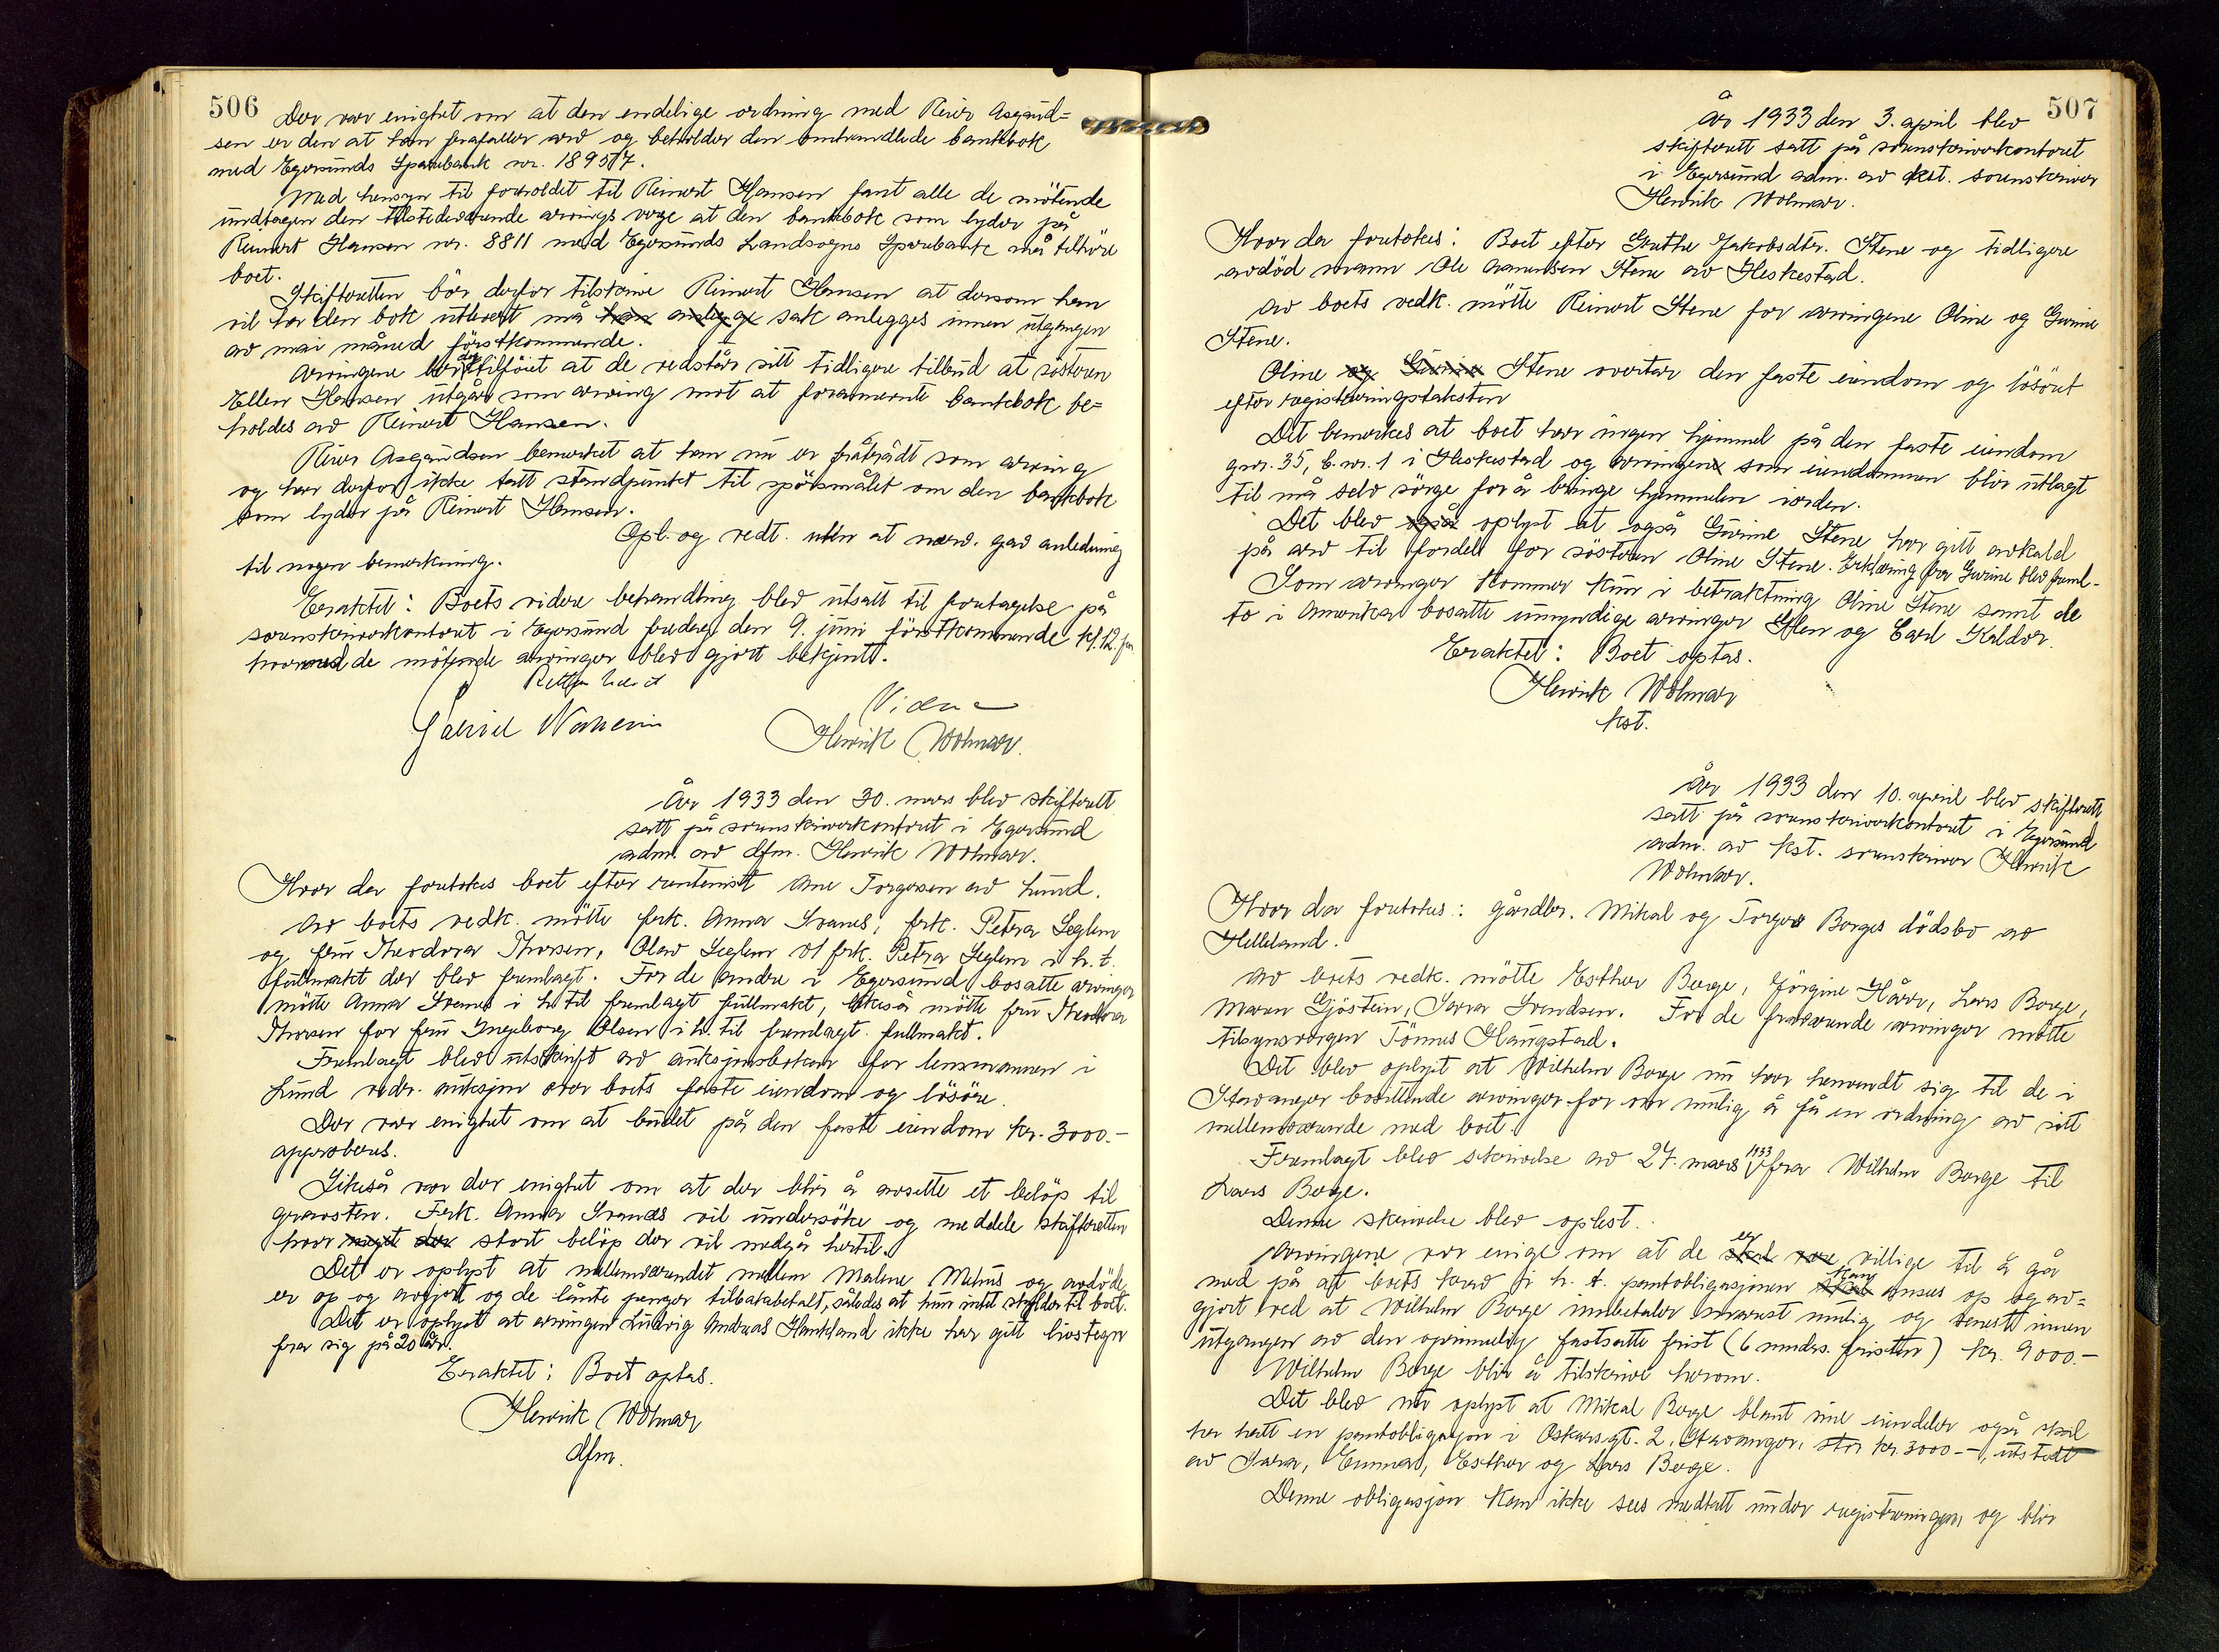 506
Der var enighet om at den endelige ordning med Reier Asgaud=
sen er den at han frafaller arv og beholder den omhandlede bankbok
med Egersunds Sparebank nr. 189517.
Med hensyn til forholdet til Reinert Hansen fant alle de møtende
undtagen den tilstedeværende arvings verge at den bankbok som lyder på
Reinert Hansen nr. 8811 med Egersunds Landsogns Sparebank må tilhøre
boet.
Skifteretten bør derfor tilskrive Reinert Hansen at dersom han
vil ha den bok utlevert må han anlegge sak anlegges innen utgangen
av mai måned førstkommende.
Arvingene tilføiet at de vedstår sitt tidligere tilbud at søsteren
Ellen Hansen utgår som arving mot at forannevnte bankbok be=
holdes av Reinert Hansen.
Reier Asgaudsen bemerket at han nu er fratrådt som arving
og har derfor ikke tatt standpunkt til spørsmålet om den bankbok
som lyder på Reinert Hansen.
Opl. og vedt. uten at nærv. gav anledning
til nogen bemerkning.
Eraktet: Boets videre behandling blev utsatt til foretagelse på
sorenskriverkontoret i Egersund fredag den 9. juni førstkommende kl. 12. fm.
hvormed de møtende arvinger blev gjort bekjent.
Retten hevet
Gabriel
Henrik Wolmar.
År 1933 den 30. mars blev skifterett
satt på sorenskriverkontoret i Egersund
adm. av dfm. Henrik Wolmar.
Hvor da foretokes boet efter rentenist Ane Torgersen av Lund.
Av boets vedk. møtte frk. Anna Svanes, frk. Petra Seglem
og fru Theodora Thorsen, Olav Seglem vl frk. Petra Seglem i h. t.
fullmakt der blev fremlagt. For de andre i Egersund bosatte arvinger
møtte Anna Svanes i h. til fremlagt fullmakt, likeså møtte fru Theodora
Thorsen for fru Ingeborg Olsen i h. til fremlagt fullmakt.
Fremlagt blev utskrift av auksjonsboken for lensmannen i
Lund vedr. auksjon over boets faste eiendom og løsøre.
Der var enighet om at budet på den faste eiendom kr. 3000.-
approberes.
Likeså var der enighet om at der blir å avsette et beløp til
gravsten. Frk. Anna Svanes vil undersøke og meddele skifteretten
hvor meget der stort beløp der vil medgå hertil.
Det er oplyst at mellemværendet mellem Malene Mehus og avdøde
er op og avgjort og de lånte penger tilbakebetalt, således at hun intet skylder til boet.
Det er oplyst at arvingen Ludvig Andreas Haukland ikke har gitt livstegn
fra sig på 20 år.
Eraktet: Boet optas.
Henrik Wolmar
dfm.
507
År 1933 den 3. april blev
skifterett satt på sorenskriverkontoret
i Egersund adm. av kst. sorenskriver
Henrik Wolmar.
Hvor da foretokes: Boet efter Gruthe Jakobsdtr. Stene og tidligere
avdød mann Ole Aamundsen Stene av Heskestad.
Av boets vedk. møtte Reinert Stene for arvingene Oline og Gurine
Stene.
Oline og Gurine Stene overtar den faste eiendom og løsøret
efter registreringstaksten
Det bemerkes at boet har ingen hjemmel på den faste eiendom
gnr. 35, b.nr. 1 i Heskestad og arvingene som eiendommen blir utlagt
til må selv sørge for å bringe hjemmelen iorden.
Det blev også oplyst at også Gurine Stene har gitt avkald
på arv til fordel for søsteren Oline Stene. Erklæring fra Gurine blev freml.
Som arvinger kommer kun i betraktning Oline Stene samt de
to i Amerika bosatte umyndige arvinger Ellen og Carl Kalder.
Eraktet: Boet optas.
Henrik Wolmar
kst.
År 1933 den 10. april blev skifterett
satt på sorenskriverkontoret i Egersund
adm. av kst. sorenskriver Henrik
Wolmar.
Hvor da foretokes: gårdbr. Mikal og Torger Berges dødsbo av
Helleland.
Av boets vedk. møtte Esther Berge, Jørgine Hårr, Lars Berge,
Maren Sjøstein, Sara Svendsen. For de fraværende arvinger møtte
tilsynsvergen Tønnes Haugstad.
Det blev oplyst at Wilhelm Berge nu har henvendt sig til de i
Stavanger bosittende arvinger for om mulig å få en ordning av sitt
mellemværende med boet.
Fremlagt blev skrivelse av 27. mars 1933 fra Wilhelm Berge til
Lars Berge.
Denne skrivelse blev oplest.
Arvingene var enige om at de skal være er villige til å gå
med på at boets krav i h. t. pantobligasjonen skal kan anses op og av=
gjort ved at Wilhelm Berge innbetaler snarest mulig og senest innen
utgangen av den oprinnelig fastsatte frist (6 mndrs. fristen) kr. 9000.-
Wilhelm Berge blir å tilskrive herom.
Det blev nu oplyst at Mikal Berge blant sine eiendeler også skal
ha hatt en pantobligasjon i Oskarsgt. 2, Stavanger, stor kr. 3000.-, utstedt
av Sara, Emma, Esther og Lars Berge.
Denne obligasjon kan ikke sees medtatt under registreringen, og blir